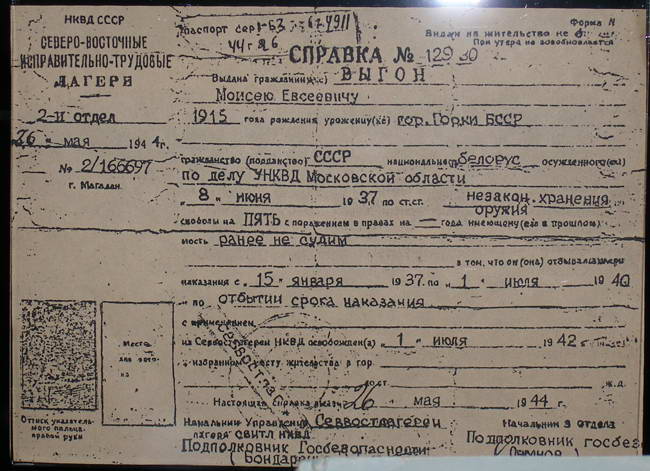 НКВД СССР
СЕВЕРО-ВОСТОЧНЫЕ
ИСПРАВИТЕЛЬНО-ТРУДОВЫЕ
ЛАГЕРЯ
2-й отдел
26 мая 1944г.
№ 2/166697
г. Магадан.
Форма
Видом на жительство не
При утере не возобновляется
СПРАВКА № 12930
Выдана гражданину(ке)
ВЫГОН
Моисею Евсеевичу
1915 года рождения урожену(ке) гор. Горки БССР
гражданство (подданство) СССР национальность белорус осужденного(ой)
по делу УНКВД Московской области
" 8 " июня 1937 по ст.ст. незакон. хранения
оружия
свободы на ПЯТЬ с поражением в правах на — года имеющему(ей) в прошлом
мость ранее не судим
в том, что он(она) отбывал
наказания с " 15 " января 1937. по " 1 " июля 1940
" по отбытии срока наказания
с применением
из Севвостлагерей НКВД освобожден(а) " 1 " июля 1942 г
к избранному месту жительства в гор
ж.д.
Место
для фото-
Оттиск указатель-
ного пальца
правой руки
Настоящая справка выдана 26 " мая 1944 г.
Начальник Управления Севвостлагерей
лагеря СВИТЛ НКВД
Подполковник Госбезопасности
Начальник 2 отдела
Подполковник госбез